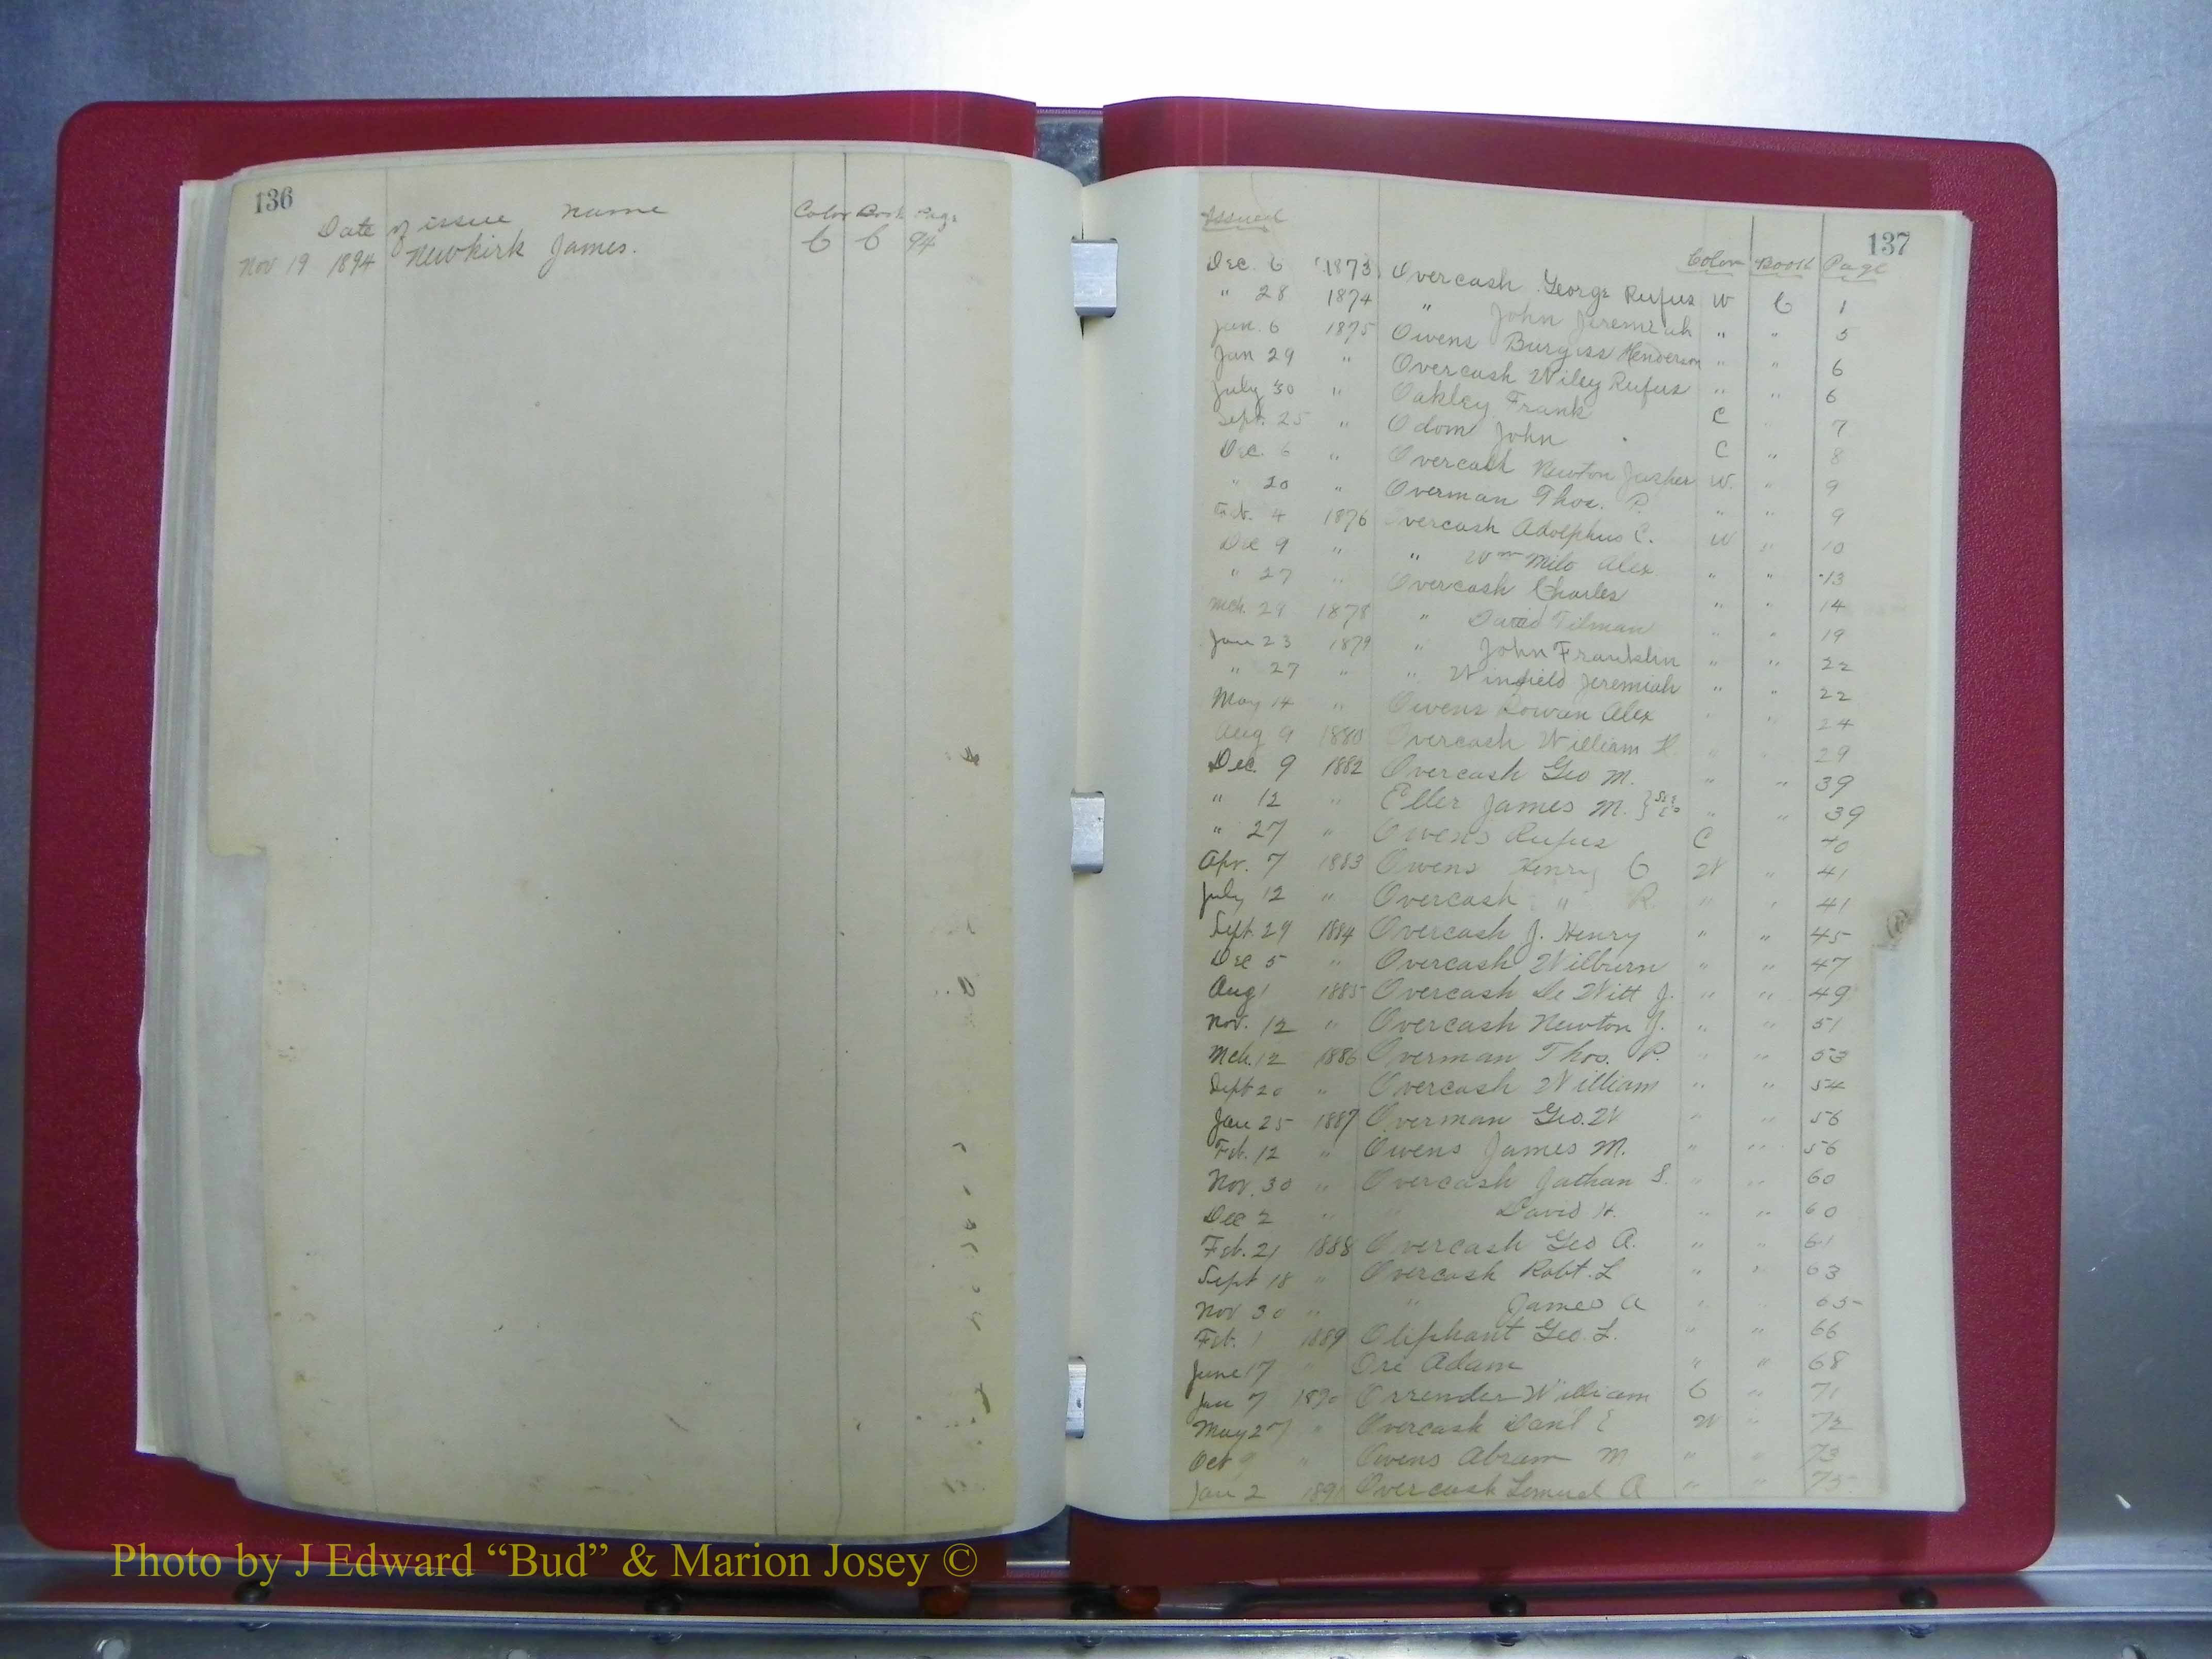 136
Date of issue Name Color Book Page
Nov 19 1894 Newkirk James. C C 94
137
Issued Color Book Page
Dec. 6 1873 Overcash George Rufus W C 1
" 28 1874 " John Jeremiah " " 5
Jan. 6 1875 Owens Burgess Henderson " " 6
Jan 29 " Overcash Wiley Rufus " " 6
July 30 " Oakley Frank C 7
Sept. 25 " Odom John C " 8
Dec. 6 " Overcash Newton Jasper W. " 9
" 20 " Overman Thos. P. " " 9
Feb. 4 1876 Overcash Adolphus C. W " 10
Dec 9 " " Wm Milo Alex " " 13
" 27 " Overcash Charles " " 14
Mch. 29 1878 " David Tilman " " 19
Jan 23 1879 " John Franklin " " 22
" 27 " " Winfield Jeremiah " " 22
May 14 " Owens Rowan Alex " " 24
Aug 9 1880 Overcash William H. " " 29
Dec. 9 1882 Overcash Geo M. " " 39
" 12 " Eller James M. " " 39
" 27 " Owens Rufus C 40
Apr. 7 1883 Owens Henry C W " 41
July 12 " Overcash " R. " " 41
Sept 29 1884 Overcash J. Henry " " 45
Dec 5 " Overcash Wilburn " " 47
Aug 1 1885 Overcash De Witt J. " " 49
Nov. 12 " Overcash Newton J. " " 51
Mch. 12 1886 Overman Thos. P. " " 53
Sept 20 " Overcash William " " 54
Jan 25 1887 Overman Geo. W " " 56
Feb. 12 " Owens James M. " " 56
Nov. 30 " Overcash Jathan S. " " 60
Dec 2 " " David H. " " 60
Feb. 21 1888 Overcash Geo A. " " 61
Sept 18 " Overcash Robt. L " " 63
Nov 30 " " James A " " 65
Feb. 1 1889 Oliphant Geo. L. " " 66
June 17 " Ore Adam " " 68
Jan 7 1890 Orrender William C " 71
May 27 " Overcash Danl E W " 72
Oct 9 " Owens Abram M " " 73
Jan 2 1891 Overcash Lemuel A " " 75
Photo by J Edward “Bud” & Marion Josey ©